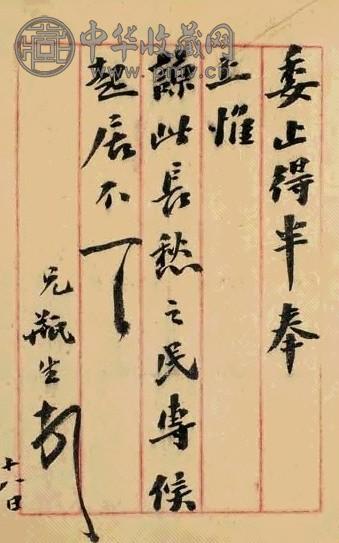 中华收藏网
委止得半奉
上惟
諒此長愁之民專候
起居不
兄瓶生
十八日